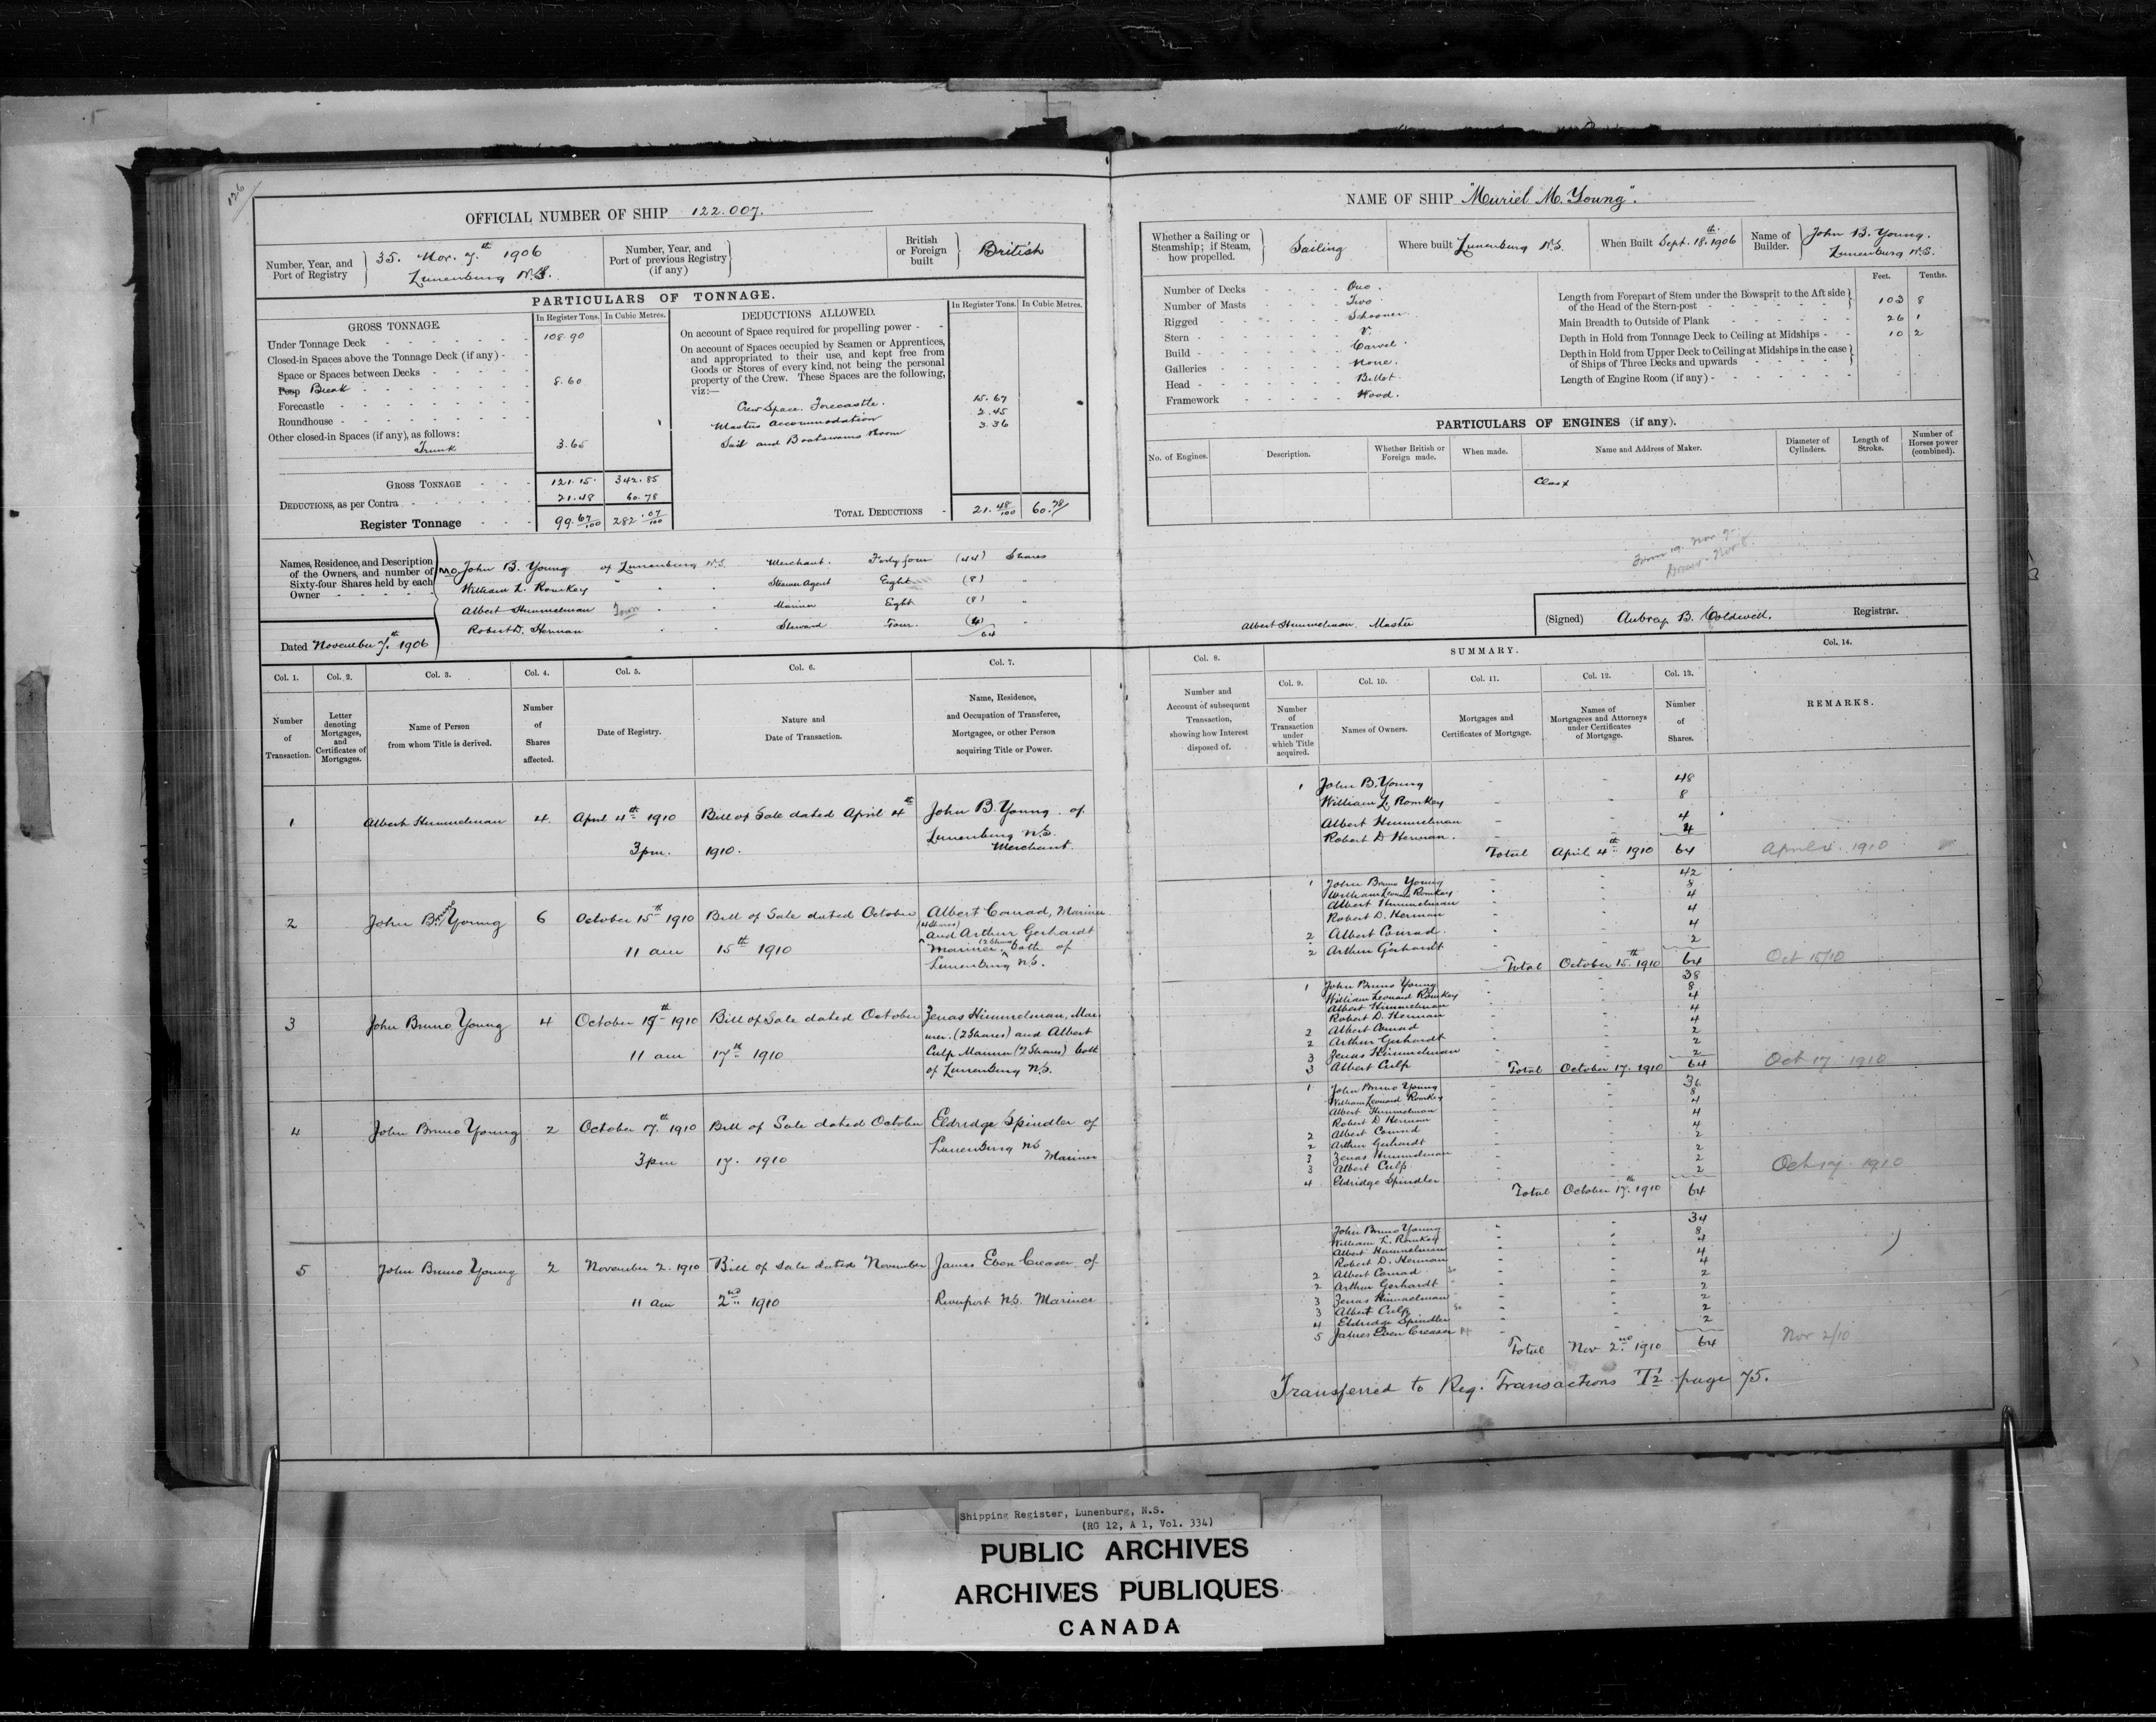 126
OFFICIAL NUMBER OF SHIP 122.007.
Number, Year, and Port of Registry
35. Nov. 7th 1906
Lunenburg N.S.
Number, Year, and Port of previous Registry (if any)
British or Foreign built
British
PARTICULARS OF TONNAGE.
GROSS TONNAGE. In Register Tons. In Cubic Metres.
Under Tonnage Deck 108.90
Closed-in Spaces above the Tonnage Deck (if any)
Space or Spaces between Decks
Poop Break 8.60
Forecastle
Roundhouse
Other closed-in Spaces (if any), as follows:
Trunk 3.65
GROSS TONNAGE 121.15 342.85
DEDUCTIONS, as per Contra 21.48 60.78
Register Tonnage 99.67/100 282.07/100
DEDUCTIONS ALLOWED. In Register Tons. In Cubic Metres.
On account of Space required for propelling power
On account of Spaces occupied by Seamen or Apprentices,
and appropriated to their use, and kept free from
Goods or Stores of every kind, not being the personal
property of the Crew. These Spaces are the following,
viz:—
Crew Space. Forecastle. 15.67
Masters Accommodation 2.45
Sail and Boatswains Room 3.36
TOTAL DEDUCTIONS 21.48/100 60.78
Names, Residence, and Description
of the Owners, and number of
Sixty-four Shares held by each
Owner
John B. Young of Lunenburg N.S. Merchant. Forty four (44) Shares
William L. Romkey " " Steamer Agent Eight (8) "
Albert Himmelman " " Mariner Eight (8) "
Robert D. Herman " " Steward Four (4) "
64
Dated November 7th 1906
NAME OF SHIP "Muriel M. Young".
Whether a Sailing or Steamship; if Steam, how propelled.
Sailing
Where built Lunenburg N.S.
When Built Sept. 18th 1906
Name of Builder.
John B. Young.
Lunenburg N.S.
Number of Decks One.
Number of Masts Two
Rigged Schooner
Stern V.
Build Carvel.
Galleries None.
Head Billot.
Framework Wood.
Feet. Tenths.
Length from Forepart of Stem under the Bowsprit to the Aft side
of the Head of the Stern-post 103 8
Main Breadth to Outside of Plank 26 1
Depth in Hold from Tonnage Deck to Ceiling at Midships 10 2
Depth in Hold from Upper Deck to Ceiling at Midships in the case
of Ships of Three Decks and upwards
Length of Engine Room (if any)
PARTICULARS OF ENGINES (if any).
No. of Engines. Description. Whether British or Foreign made. When made. Name and Address of Maker. Diameter of Cylinders. Length of Stroke. Number of Horses power (combined).
Form 19. Nov 7
Nov 8.
Albert Himmelman. Master
(Signed) Aubrey B. Coldwell. Registrar.
Col. 1. Col. 2. Col. 3. Col. 4. Col. 5. Col. 6. Col. 7.
Number of Transaction.
Letter denoting Mortgages, and Certificates of Mortgages.
Name of Person from whom Title is derived.
Number of Shares affected.
Date of Registry.
Nature and Date of Transaction.
Name, Residence, and Occupation of Transferee, Mortgagee, or other Person acquiring Title or Power.
1 Albert Himmelman 4. April 4th 1910 Bill of Sale dated April 4th John B. Young of
3pm. 1910. Lunenburg N.S.
Merchant.
2 John Bruno Young 6 October 15th 1910 Bill of Sale dated October Albert Conrad, Mariner
(4 Shares)
and Arthur Gerhardt
11 am 15th 1910 Mariner (2 Shares) both of
Lunenburg N.S.
3 John Bruno Young 4 October 17th 1910 Bill of Sale dated October Zenas Himmelman, Mar
iner. (2 Shares) and Albert
11 am 17th 1910 Culp Mariner (2 Shares) both
of Lunenburg N.S.
4 John Bruno Young 2 October 17th 1910 Bill of Sale dated October Eldridge Spindler of
3pm 17. 1910 Lunenburg NS
Mariner
5 John Bruno Young 2 November 2. 1910 Bill of Sale dated November James Eben Creaser of
11 am 2nd 1910 Riverport N.S. Mariner
Col. 8. SUMMARY. Col. 14.
Col. 9. Col. 10. Col. 11. Col. 12. Col. 13.
Number and Account of subsequent Transaction, showing how Interest disposed of.
Number of Transaction under which Title acquired.
Names of Owners.
Mortgages and Certificates of Mortgage.
Names of Mortgagees and Attorneys under Certificates of Mortgage.
Number of Shares.
REMARKS.
1 John B. Young 48
William L. Romkey 8
Albert Himmelman 4
Robert D Herman. 4
Total April 4th 1910 64 April 4. 1910
1 John Bruno Young 42
William Leonard Romkey 8
Albert Himmelman 4
Robert D. Herman 4
2 Albert Conrad 4
2 Arthur Gerhardt 2
Total October 15th 1910 64 Oct 15/10
1 John Bruno Young 38
William Leonard Romkey 8
Albert Himmelman 4
Robert D. Herman 4
2 Albert Conrad 4
2 Arthur Gerhardt 2
3 Zenas Himmelman 2
3 Albert Culp 2
Total October 17. 1910 64 Oct 17. 1910
1 John Bruno Young 36
William Leonard Romkey 8
Albert Himmelman 4
Robert D Herman 4
2 Albert Conrad 4
2 Arthur Gerhardt 2
3 Zenas Himmelman 2
3 Albert Culp 2
4 Eldridge Spindler 2
Total October 17th 1910 64 Oct 17. 1910
John Bruno Young 34
William L. Romkey 8
Albert Himmelman 4
Robert D. Herman 4
2 Albert Conrad 4
2 Arthur Gerhardt 2
3 Zenas Himmelman 2
3 Albert Culp 2
4 Eldridge Spindler 2
5 James Eben Creaser 2
Total Nov 2nd 1910 64 Nov 2/10
Transferred to Reg. Transactions T2 page 75.
Shipping Register, Lunenburg, N.S.
(RG 12, A 1, Vol. 334)
PUBLIC ARCHIVES
ARCHIVES PUBLIQUES
CANADA